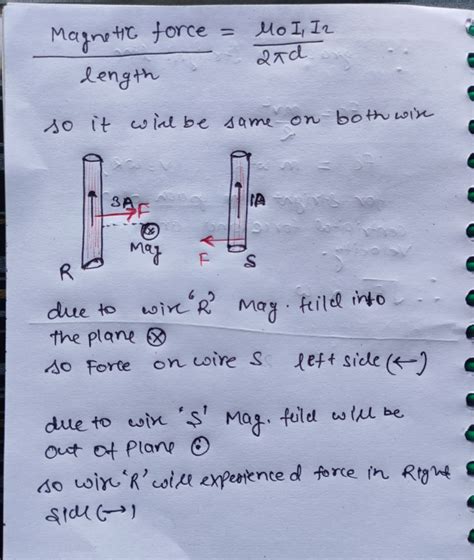 Magnetic force = μ0 I1 I2
length 2πd
so it will be same on both wire
3A F 1A
Mag F
R S
due to wire 'R' Mag. feild into
the plane ⊗
so Force on wire S left side (←)
due to wire 'S' Mag. feild will be
out of plane ⊙
so wire 'R' will experienced force in Right
side (→)